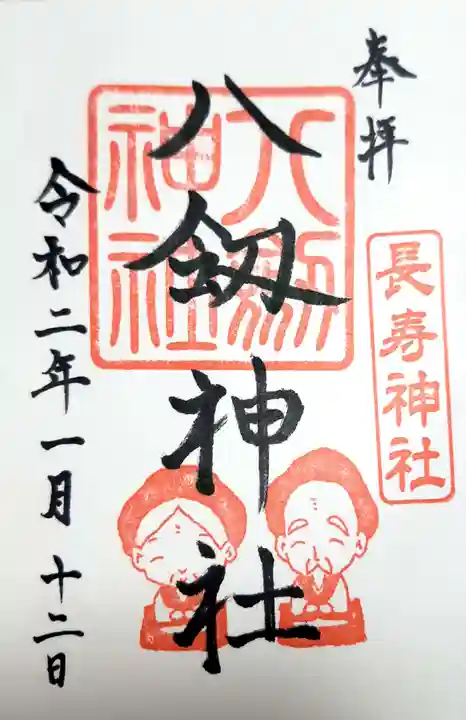 奉拝
長寿神社
八劔神社
八釼神社
令和二年一月十二日